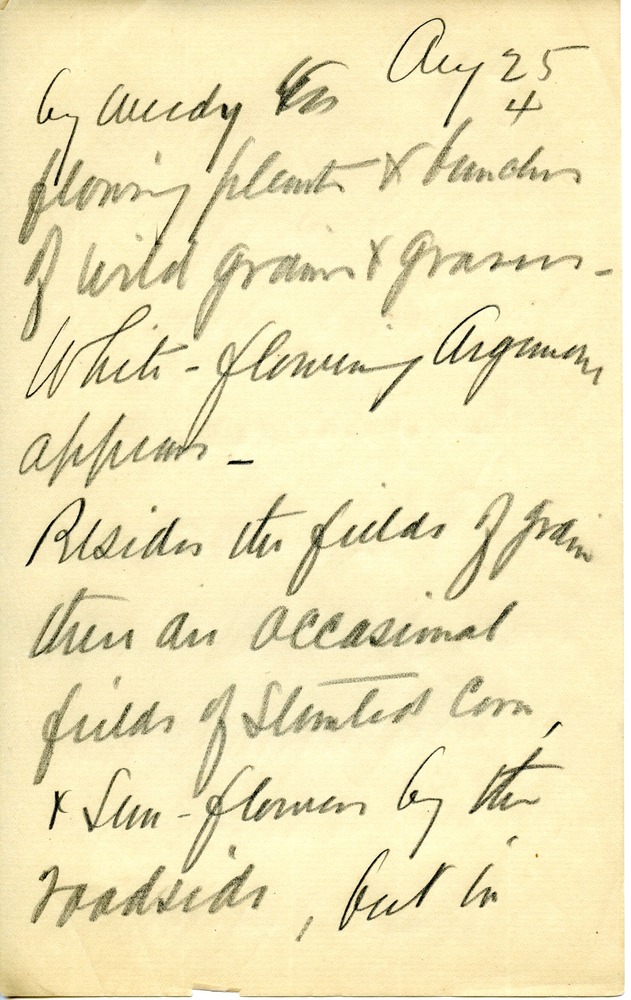 Aug 25
4
by weedy
flowing plants & bunches
of wild grains & grasses -
White-flowering Argemone
appears -
Besides the fields of grain
there are occasional
fields of stunted corn,
& sun-flowers by the
roadside, but in